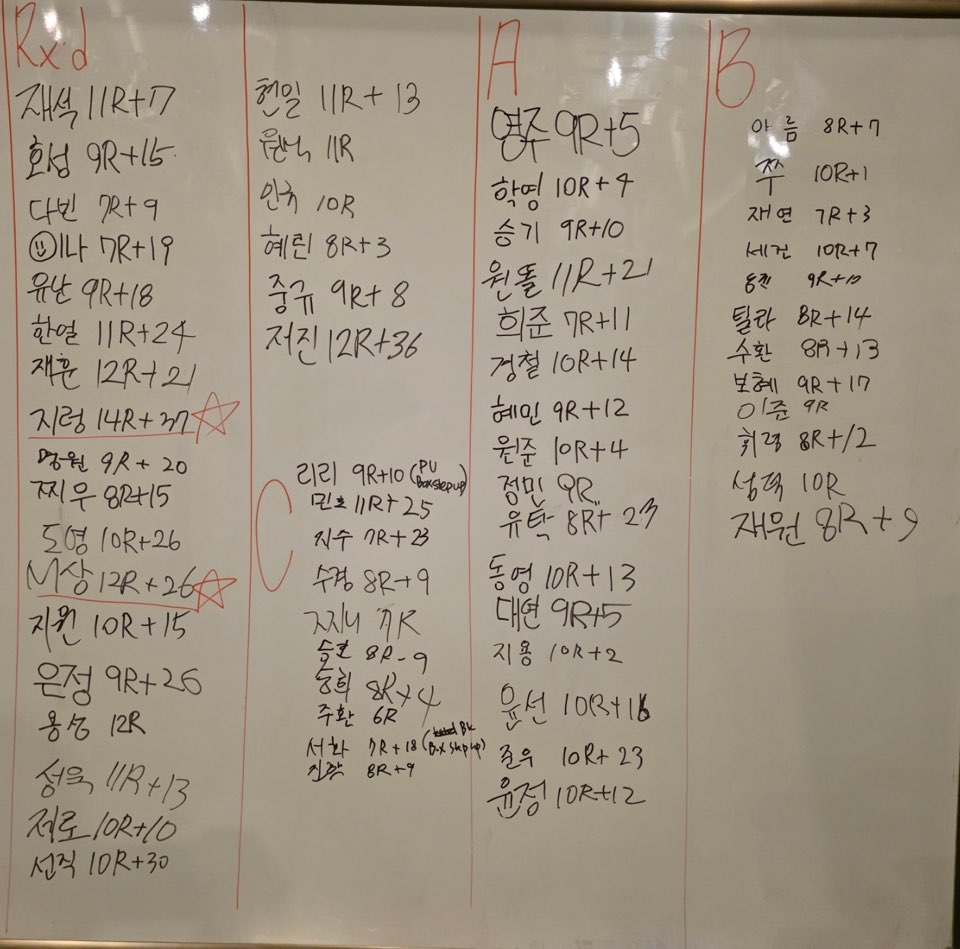 Rx'd
재석 11R+17
호성 9R+15
다빈 7R+9
이나 7R+19
유난 9R+18
한얼 11R+24
재훈 12R+21
지렁 14R+37
명원 9R+20
찌우 8R+15
도영 10R+26
M상 12R+26
지원 10R+15
은정 9R+26
용성 12R
성욱 11R+13
제로 10R+10
선직 10R+30
현일 11R+13
11R
인국 10R
혜린 8R+3
중규 9R+8
저진 12R+36
C
리리 9R+10 (PU Box step up)
민호 11R+25
지수 7R+23
수경 8R+9
찌니 7R
승호 8R-9
8R+4
주환 6R
서화 7R+18 (BK Box step up)
8R+9
A
영주 9R+5
학영 10R+4
승기 9R+10
원돌 11R+21
희준 7R+11
경철 10R+14
혜민 9R+12
원준 10R+4
정민 9R
유탁 8R+23
동영 10R+13
대연 9R+5
지용 10R+2
윤선 10R+16
준우 10R+23
윤정 10R+12
B
아름 8R+7
쭈 10R+1
재연 7R+3
세건 10R+7
9R+10
틸라 8R+14
수환 8R+13
보혜 9R+17
이준 9R
희령 8R+12
성덕 10R
재원 8R+9